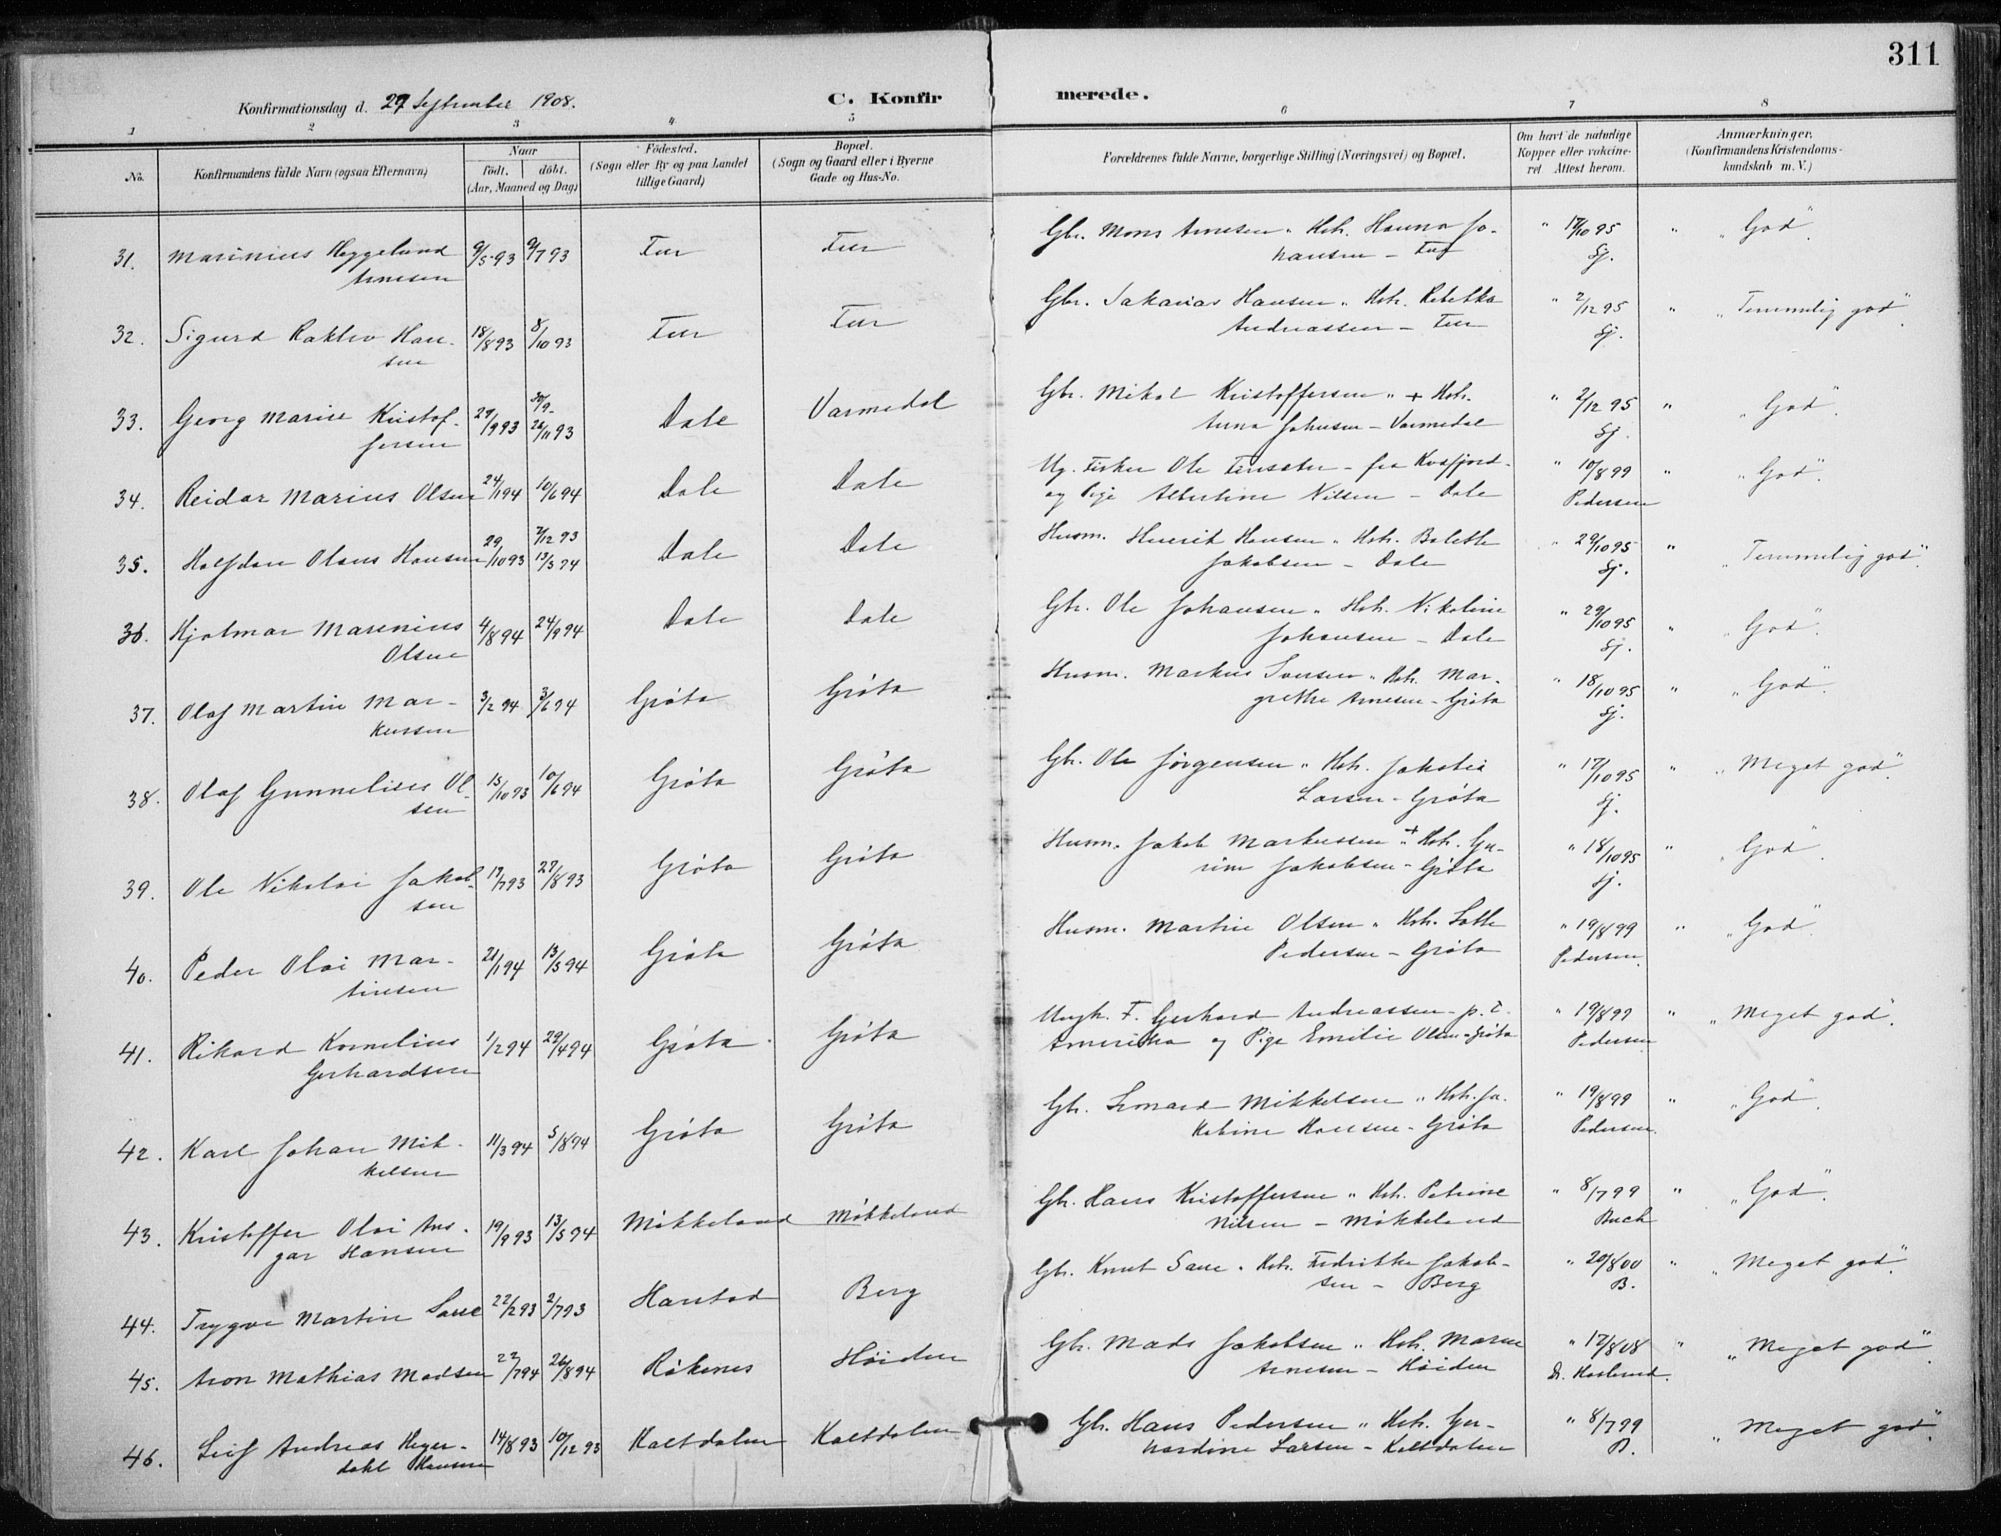 311
Konfirmationsdag d. 27 September 1908.
C. Konfirmerede.
1 2 3 4 5 6 7 8
No.
Konfirmandens fulde Navn (ogsaa Efternavn)
Naar
født. døbt.
(Aar, Maaned og Dag)
Fødested.
(Sogn eller By og paa Landet
tillige Gaard)
Bopæl.
(Sogn og Gaard eller i Byerne
Gade og Hus-No.
Forældrenes fulde Navne, borgerlige Stilling (Næringsvei) og Bopæl.
Om havt de naturlige
Kopper eller vakcine-
ret Attest herom.
Anmærkninger.
(Konfirmandens Kristendoms-
kundskab m. V.)
31. Marinius Heggelund 9/5 93 9/7 93 Fur Fur Gbr. Mons Arnesen " Hst. Hanna Jo- " 17/10 95 " "God".
Arnesen hansen – Fur Sj.
32. Sigurd Raklev Han- 18/8 93 8/10 93 Fur Fur Gbr. Sakarias Hansen " Hst. Rebekka " 2/12 95 " "Temmelig god".
sen Andreassen – Fur Sj.
33. Georg Marin Kristof- 29/9 93 30/9- Dale Varmedal Gbr. Mikal Kristoffersen " + Hst. " 2/12 95 " "God".
fersen 26/11 93 Anna Johnsen – Varmedal Sj.
34. Reidar Marius Olsen 24/1 94 10/6 94 Dale Dale Ug. Fisker Ole – fra Kvæfjord- " 10/8 99 " "God".
og Pige Albertine Nilsen – Dale Pedersen
35. Halfdan Olaus Hansen 29/10 93 7/12 93 Dale Dale Husm. Henrik Hansen " Hst. Bolette " 29/10 95 " "Temmelig god".
13/5 94 Jakobsen – Dale Sj.
36. Hjalmar Marenius 4/8 94 24/9 94 Dale Dale Gbr. Ole Johansen " Hst. Nikoline " 29/10 95 " "God".
Olsen Johansen – Dale Sj.
37. Olaf Martin Mar- 3/2 94 3/6 94 Grøta Grøta Husm. Markus Iversen " Hst. Mar- " 18/10 95 " "God".
kussen grethe Arnesen – Grøta Sj.
38. Olaf Gunnelius Ol- 15/10 93 10/6 94 Grøta Grøta Gbr. Ole Jørgensen " Hst. Jakobia " 17/10 95 " "Meget god".
sen Larsen – Grøta Sj.
39. Ole Nikolai Jakob- 19/7 93 27/8 93 Grøta Grøta Husm. Jakob Markussen " + Hst. Gu- " 18/10 95 " "God".
sen rine Jakobsen – Grøta Sj.
40. Peder Olai Mar- 21/1 94 13/5 94 Grøta Grøta Husm. Martin Olsen " Hst. Lotte " 19/8 99 " "God".
tinsen Pedersen – Grøta Pedersen
41. Rikard Kornelius 1/2 94 29/4 94 Grøta Grøta Ungk. F. Gerhard Andreassen – p. t. " 19/8 99 " "Meget god".
Gerhardsen Amerika og Pige Emilie Olsen – Grøta Pedersen
42. Karl Johan Mik- 11/3 94 5/8 94 Grøta Grøta Gbr. Leonard Mikkelsen " Hst. Ja- " 19/8 99 " "God".
kelsen kobine Hansen – Grøta Pedersen
43. Kristoffer Olai Ans- 19/9 93 13/5 94 Møkkeland Møkkeland Gbr. Hans Kristoffersen " Hst. Petrine " 8/7 99 " "God".
gar Hansen Nilsen – Møkkeland Buch
44. Trygve Martin Saue 22/2 93 2/7 93 Harstad Berg Gbr. Knut Saue " Hst. Fredrikke Jakob- " 20/8 00 " "Meget god".
sen – Berg B.
45. Aron Mathias Madsen 22/7 94 26/8 94 Røkenes Høiden Gbr. Mads Jakobsen " Hst. Maren " 17/8 08 " "Meget god".
Arnesen – Høiden Dr.
46. Leif Andreas Heger- 14/8 93 10/12 93 Kaltdalen Kaltdalen Gbr. Hans Pedersen " Hst. Ger- " 8/7 99 "Meget god".
dahl Hansen hardine Larsen – Kaltdalen B.